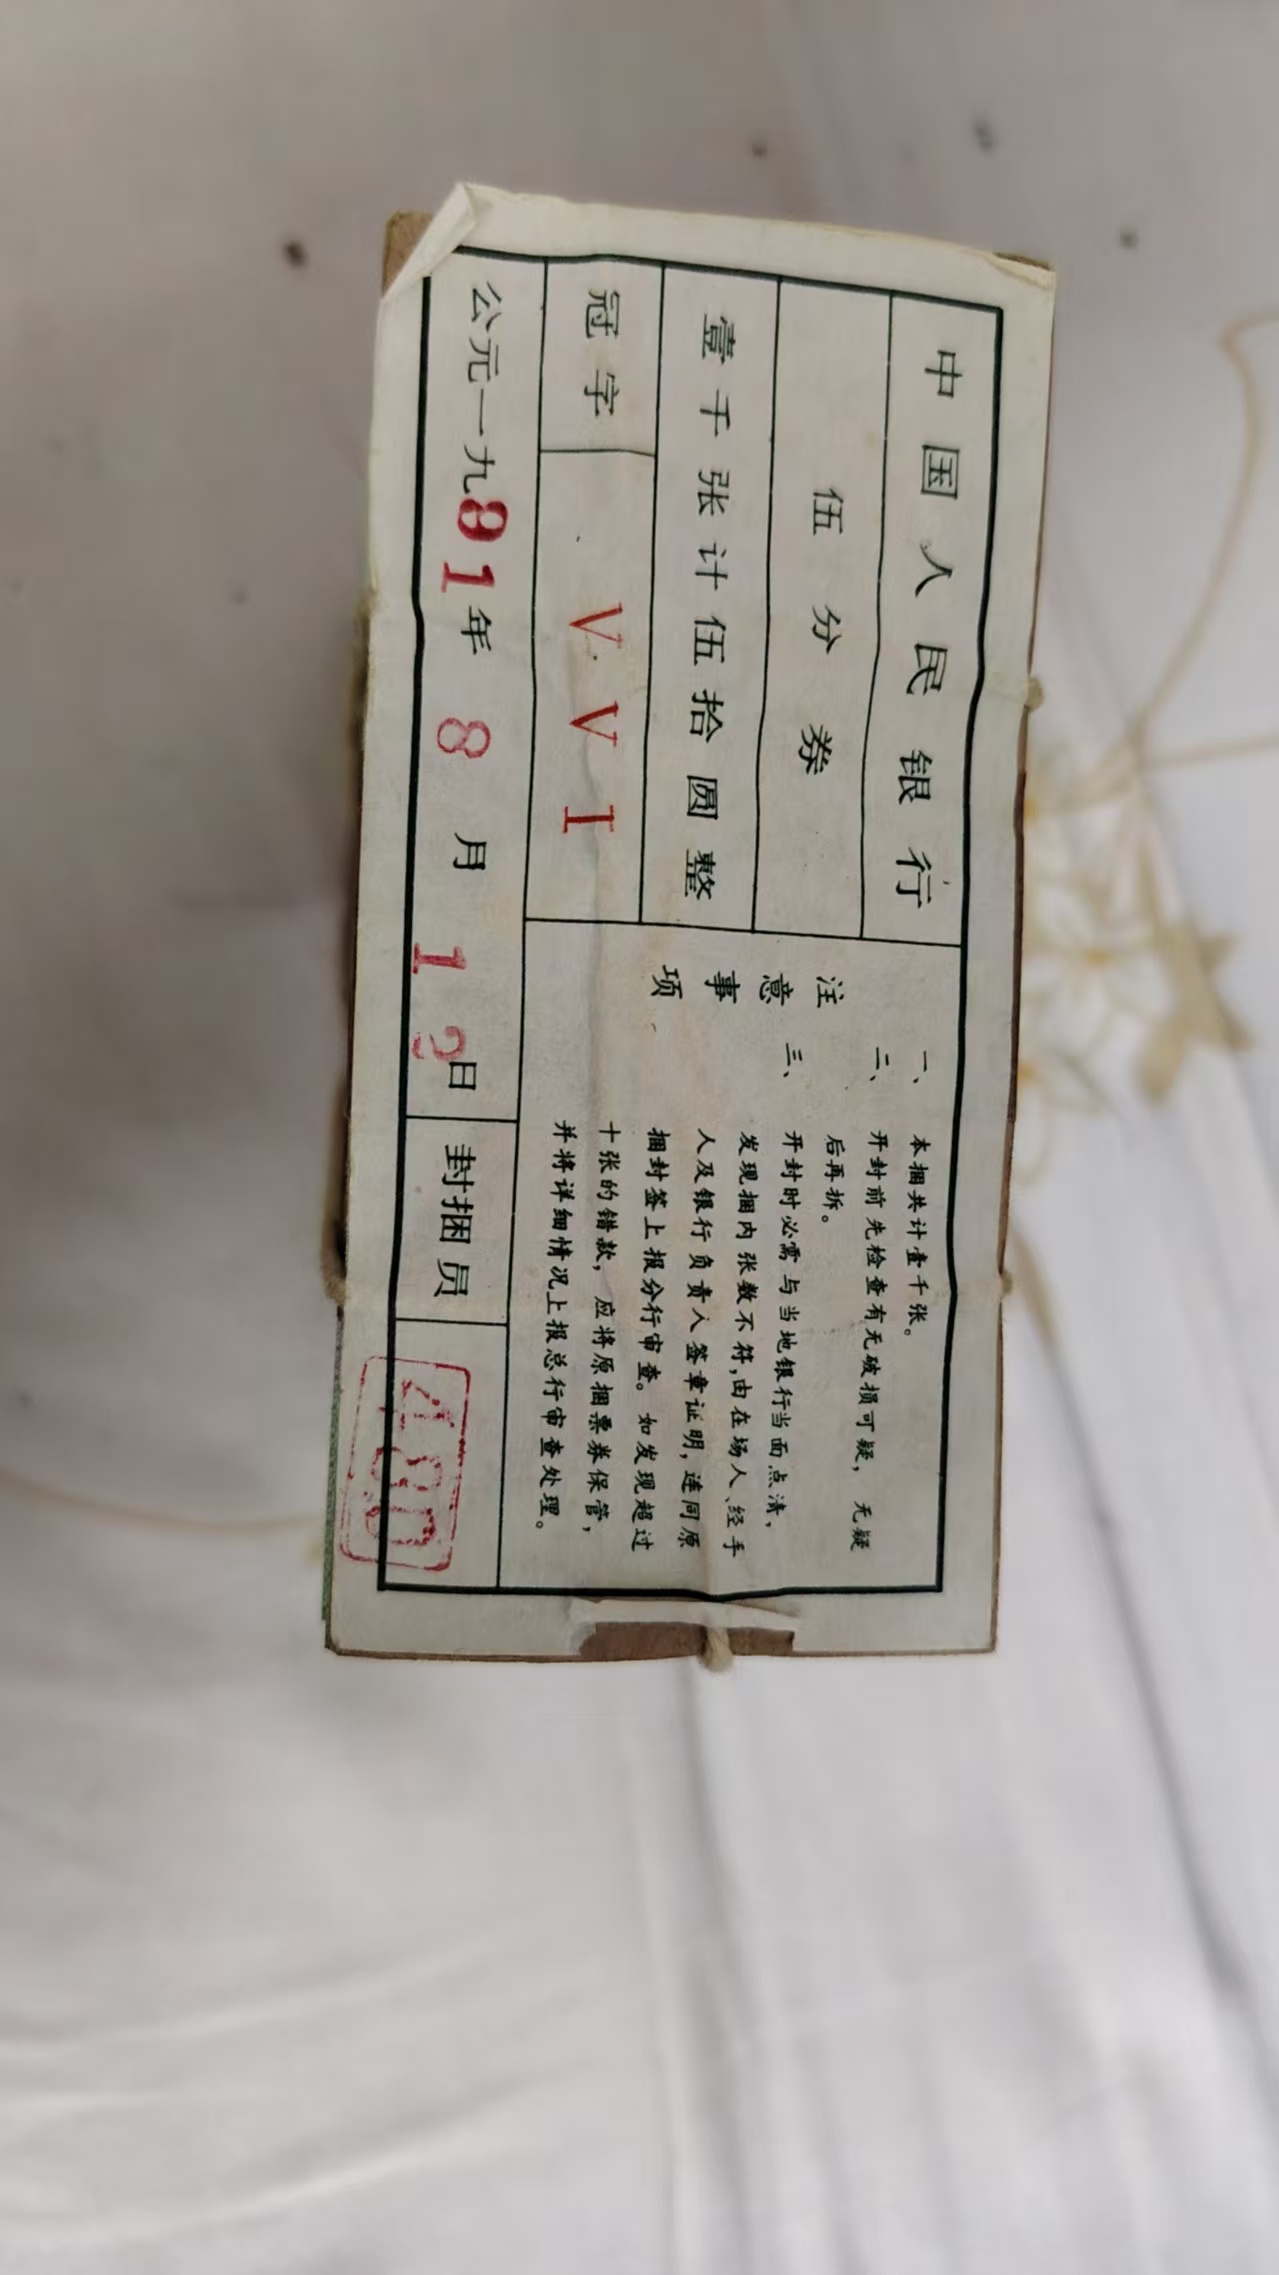 中国人民银行
伍分券
壹千张计伍拾圆整
冠字 V V I
公元一九81年 8 月 1 日 封捆员
注意事项
一、本捆共计壹千张。
二、开封前先检查有无破损可疑，无疑
后再拆。
三、开封时必需与当地银行当面点清，
发现捆内张数不符，由在场人、经手
人及银行负责人签章证明，连同原
捆封签上报分行审查。如发现超过
十张的错款，应将原捆票券保管，
并将详细情况上报总行审查处理。